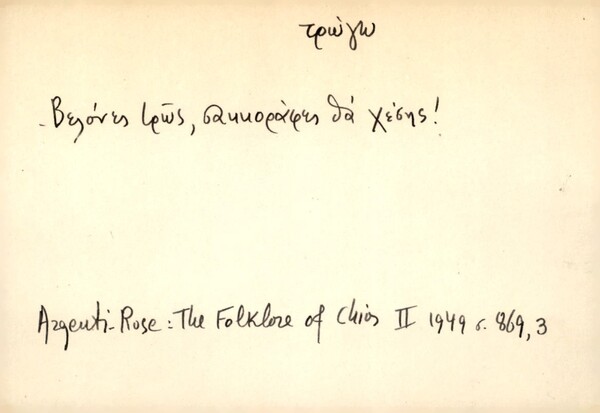 τρώγω
- Βελόνες τρῶς, σακκοράφες θά χέσης!
Argenti-Rose: The Folklore of Chios II 1949 σ. 869, 3